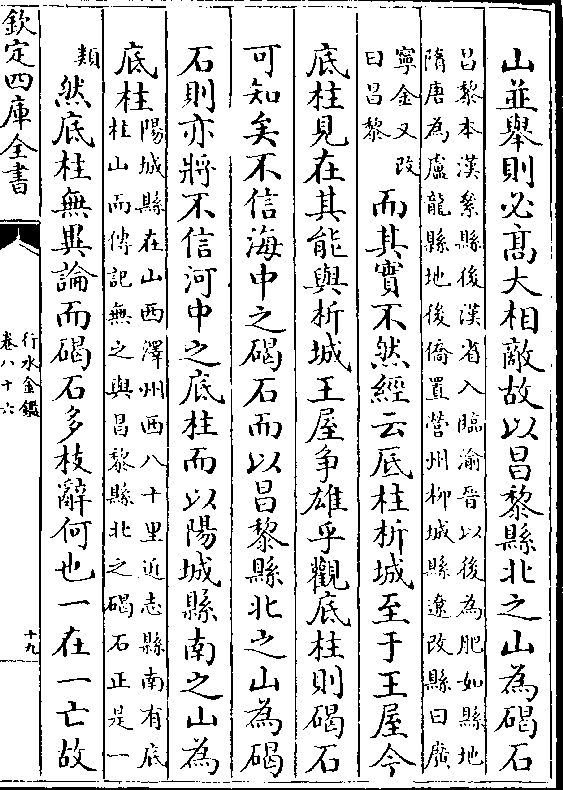 山並舉則必髙大相敵故以昌黎縣北之山為碣石
吕黎本漢絫縣後漢省入臨渝晋以後為肥如縣地
隋唐為盧龍縣地後僑置營州柳城縣遼改縣曰廣
寧金又改
曰昌黎
而其實不然經云底柱析城至于王屋今
底柱見在其能與析城王屋争雄乎觀底柱則碣石
可知矣不信海中之碣石而以昌黎縣北之山為碣
石則亦將不信河中之底柱而以陽城縣南之山為
底柱
陽城縣在山西澤州西八十里近志縣南有底
柱山而傳記無之與昌黎縣北之碣石正是一
類
然底柱無異論而碣石多枝辭何也一在一亡故
欽定四庫全書
行水金鑑
卷八十六
十九